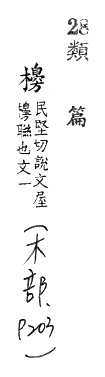 28類篇
櫋
民堅切說文屋
櫋聯也文一
(木部. P203)